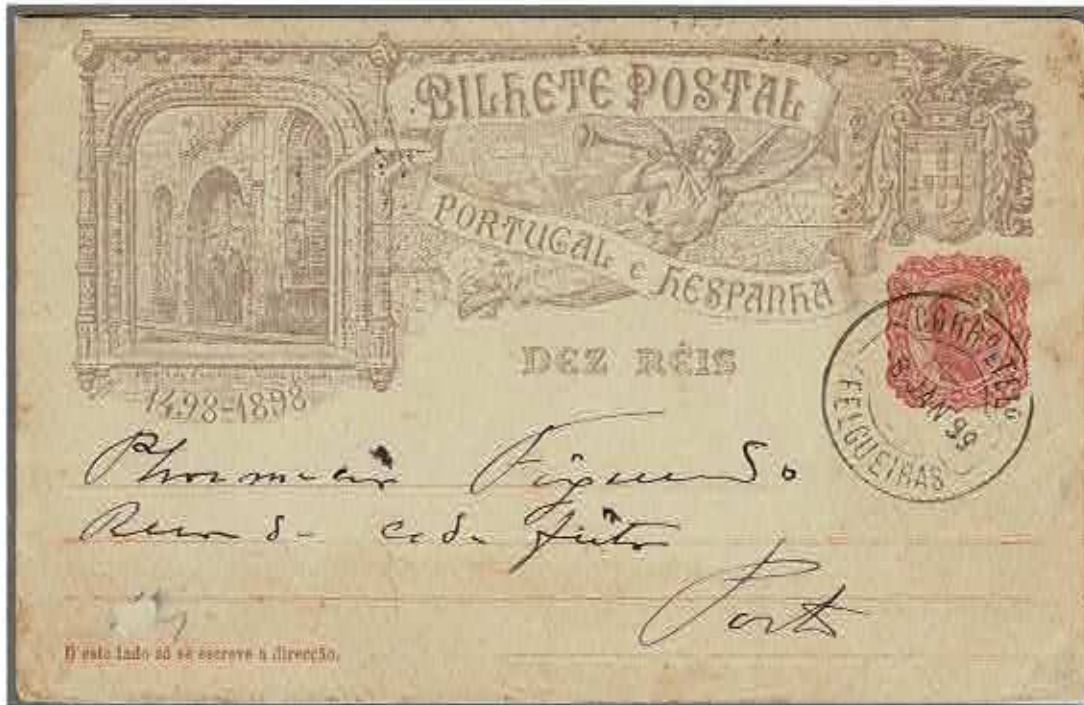 BILHETE POSTAL
PORTUGAL e HESPANHA
DEZ RÉIS
1498-1898
CORRO TELO
8 JAN 99
FELGUEIRAS
Pharmacia Figueiredo
Porto
D'este lado só se escreve a direcção.